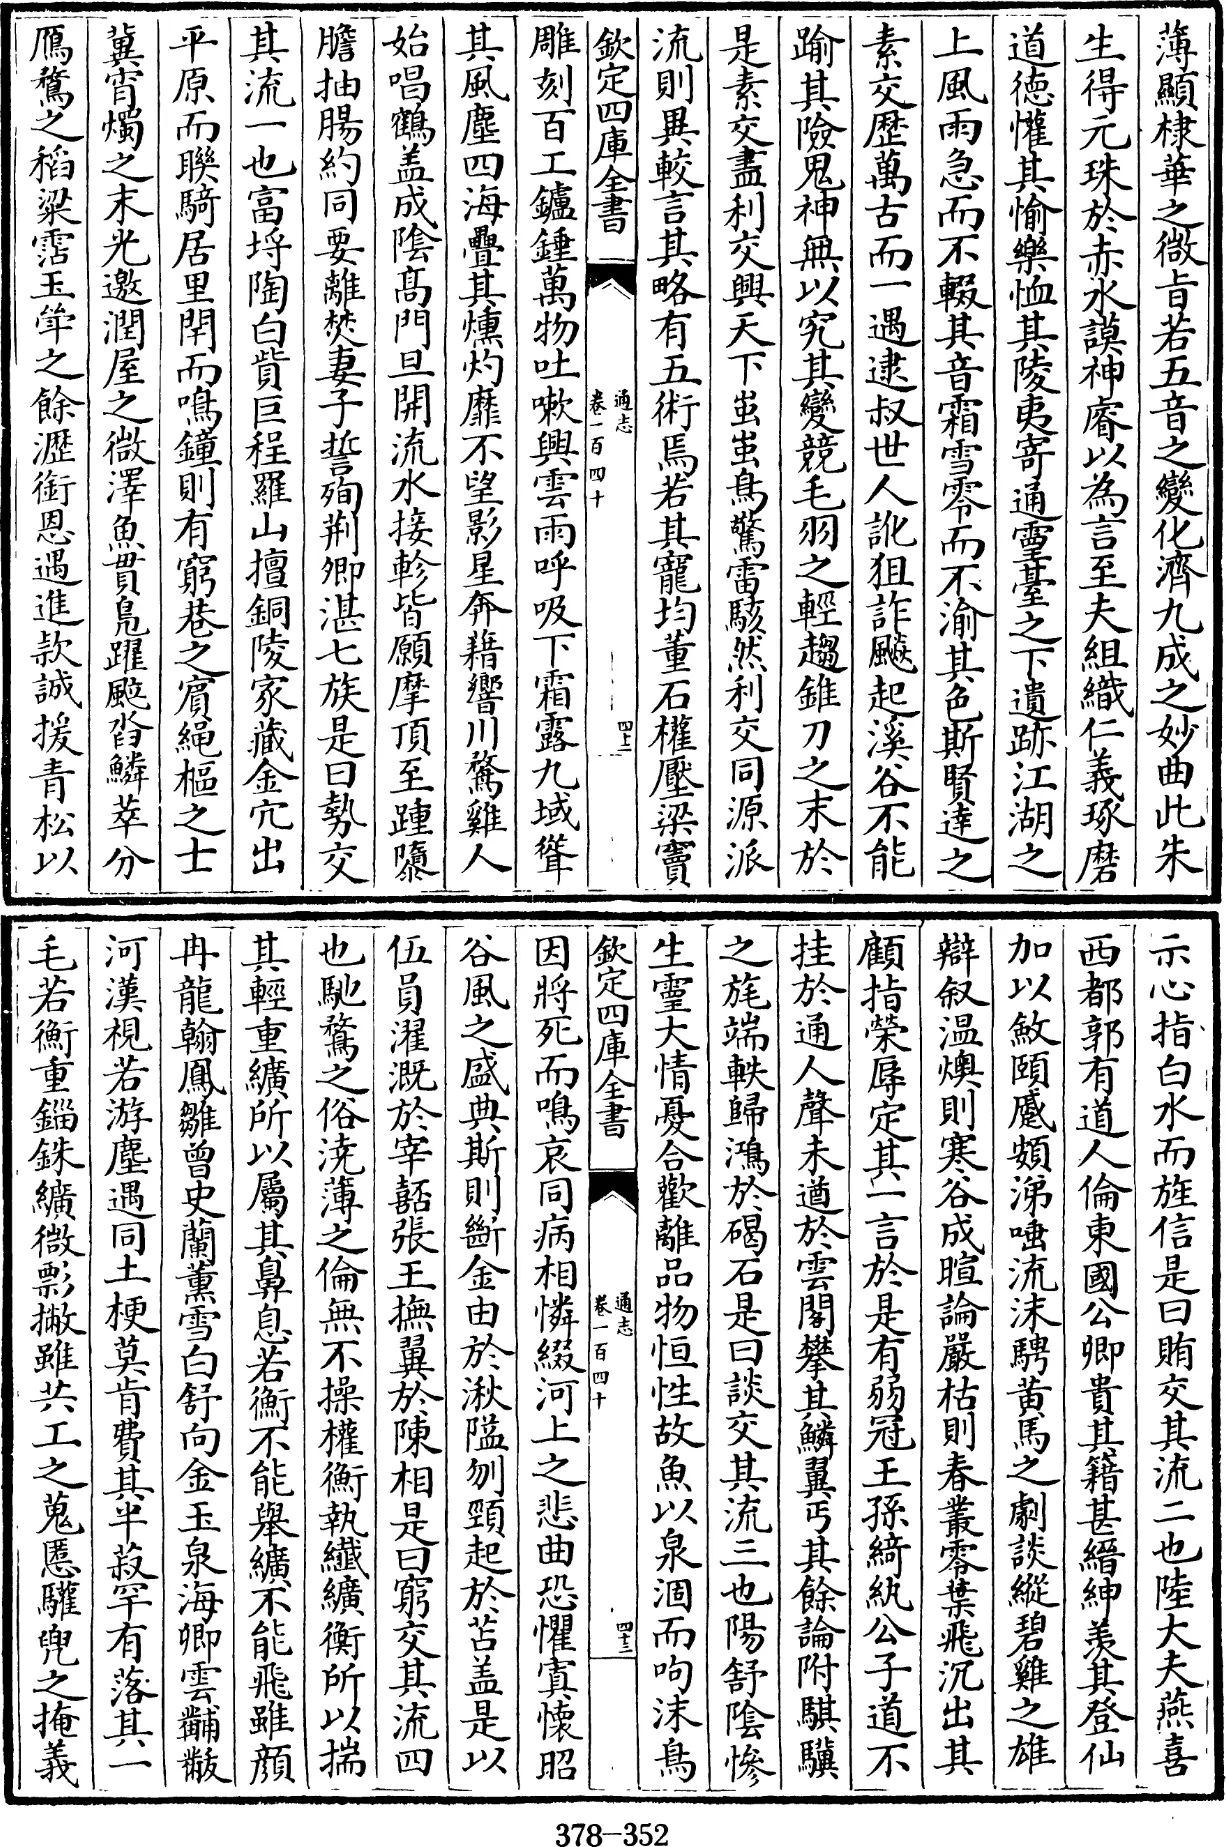 薄顯棣華之微旨若五音之變化濟九成之妙曲此朱
生得元珠於赤水謨神睿以為言至夫組織仁義琢磨
道德懽其愉樂恤其陵夷寄通靈臺之下遺跡江湖之
上風雨急而不輟其音霜雪零而不渝其色斯賢達之
素交歴萬古而一遇逮叔世人訛狙詐飇起溪谷不能
踰其險鬼神無以究其變競毛羽之輕趨錐刀之末於
是素交盡利交興天下蚩蚩鳥驚雷駭然利交同源派
流則異較言其略有五術焉若其寵均董石權壓梁竇
欽定四庫全書
通志
卷一百四十
四十二
雕刻百工鑪錘萬物吐嗽興雲雨呼吸下霜露九域聳
其風塵四海疊其燻灼靡不望影星奔藉響川騖雞人
始唱鶴盖成陰髙門旦開流水接軫皆願摩頂至踵隳
膽抽腸約同要離焚妻子誓殉荆卿湛七族是曰勢交
其流一也富埒陶白貲巨程羅山擅銅陵家藏金穴出
平原而聯騎居里閈而鳴鐘則有窮巷之賓繩樞之士
冀宵燭之末光邀潤屋之微澤魚貫鳧躍颯沓鱗萃分
鴈鶩之稻粱霑玉斝之餘瀝銜恩遇進款誠援青松以
示心指白水而旌信是曰賄交其流二也陸大夫燕喜
西都郭有道人倫東國公卿貴其籍甚縉紳羨其登仙
加以敏頤蹙頞涕唾流沫騁黄馬之劇談縱碧雞之雄
辯叙温燠則寒谷成暄論嚴枯則春叢零葉飛沉出其
顧指榮辱定其一言於是有弱冠王孫綺紈公子道不
挂於通人聲未遒於雲閣攀其鱗翼丐其餘論附騏驥
之旄端軼歸鴻於碣石是曰談交其流三也陽舒陰慘
生靈大情憂合歡離品物恒性故魚以泉涸而呴沫鳥
欽定四庫全書
通志
卷一百四十
四十三
因將死而鳴哀同病相憐綴河上之悲曲恐懼寘懷昭
谷風之盛典斯則斷金由於湫隘刎頸起於苫盖是以
伍員濯溉於宰嚭張王撫翼於陳相是曰窮交其流四
也馳騖之俗澆薄之倫無不操權衡執纖纊衡所以揣
其輕重纊所以屬其鼻息若衡不能舉纊不能飛雖顔
冉龍翰鳳雛曾史蘭薫雪白舒向金玉泉海卿雲黼黻
河漢視若游塵遇同土梗莫肯費其半菽罕有落其一
毛若衡重錙銖纊微影撇雖共工之蒐慝驩兜之掩義
378-352